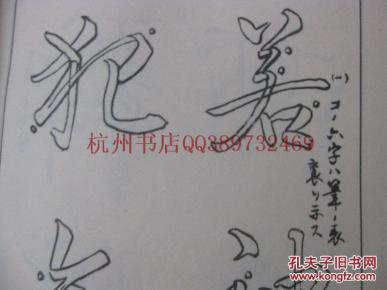 (一)コノ六字ハ筆ノ表
裏ヲ示ス
若
犯
杭州书店QQ389732469
孔夫子旧书网